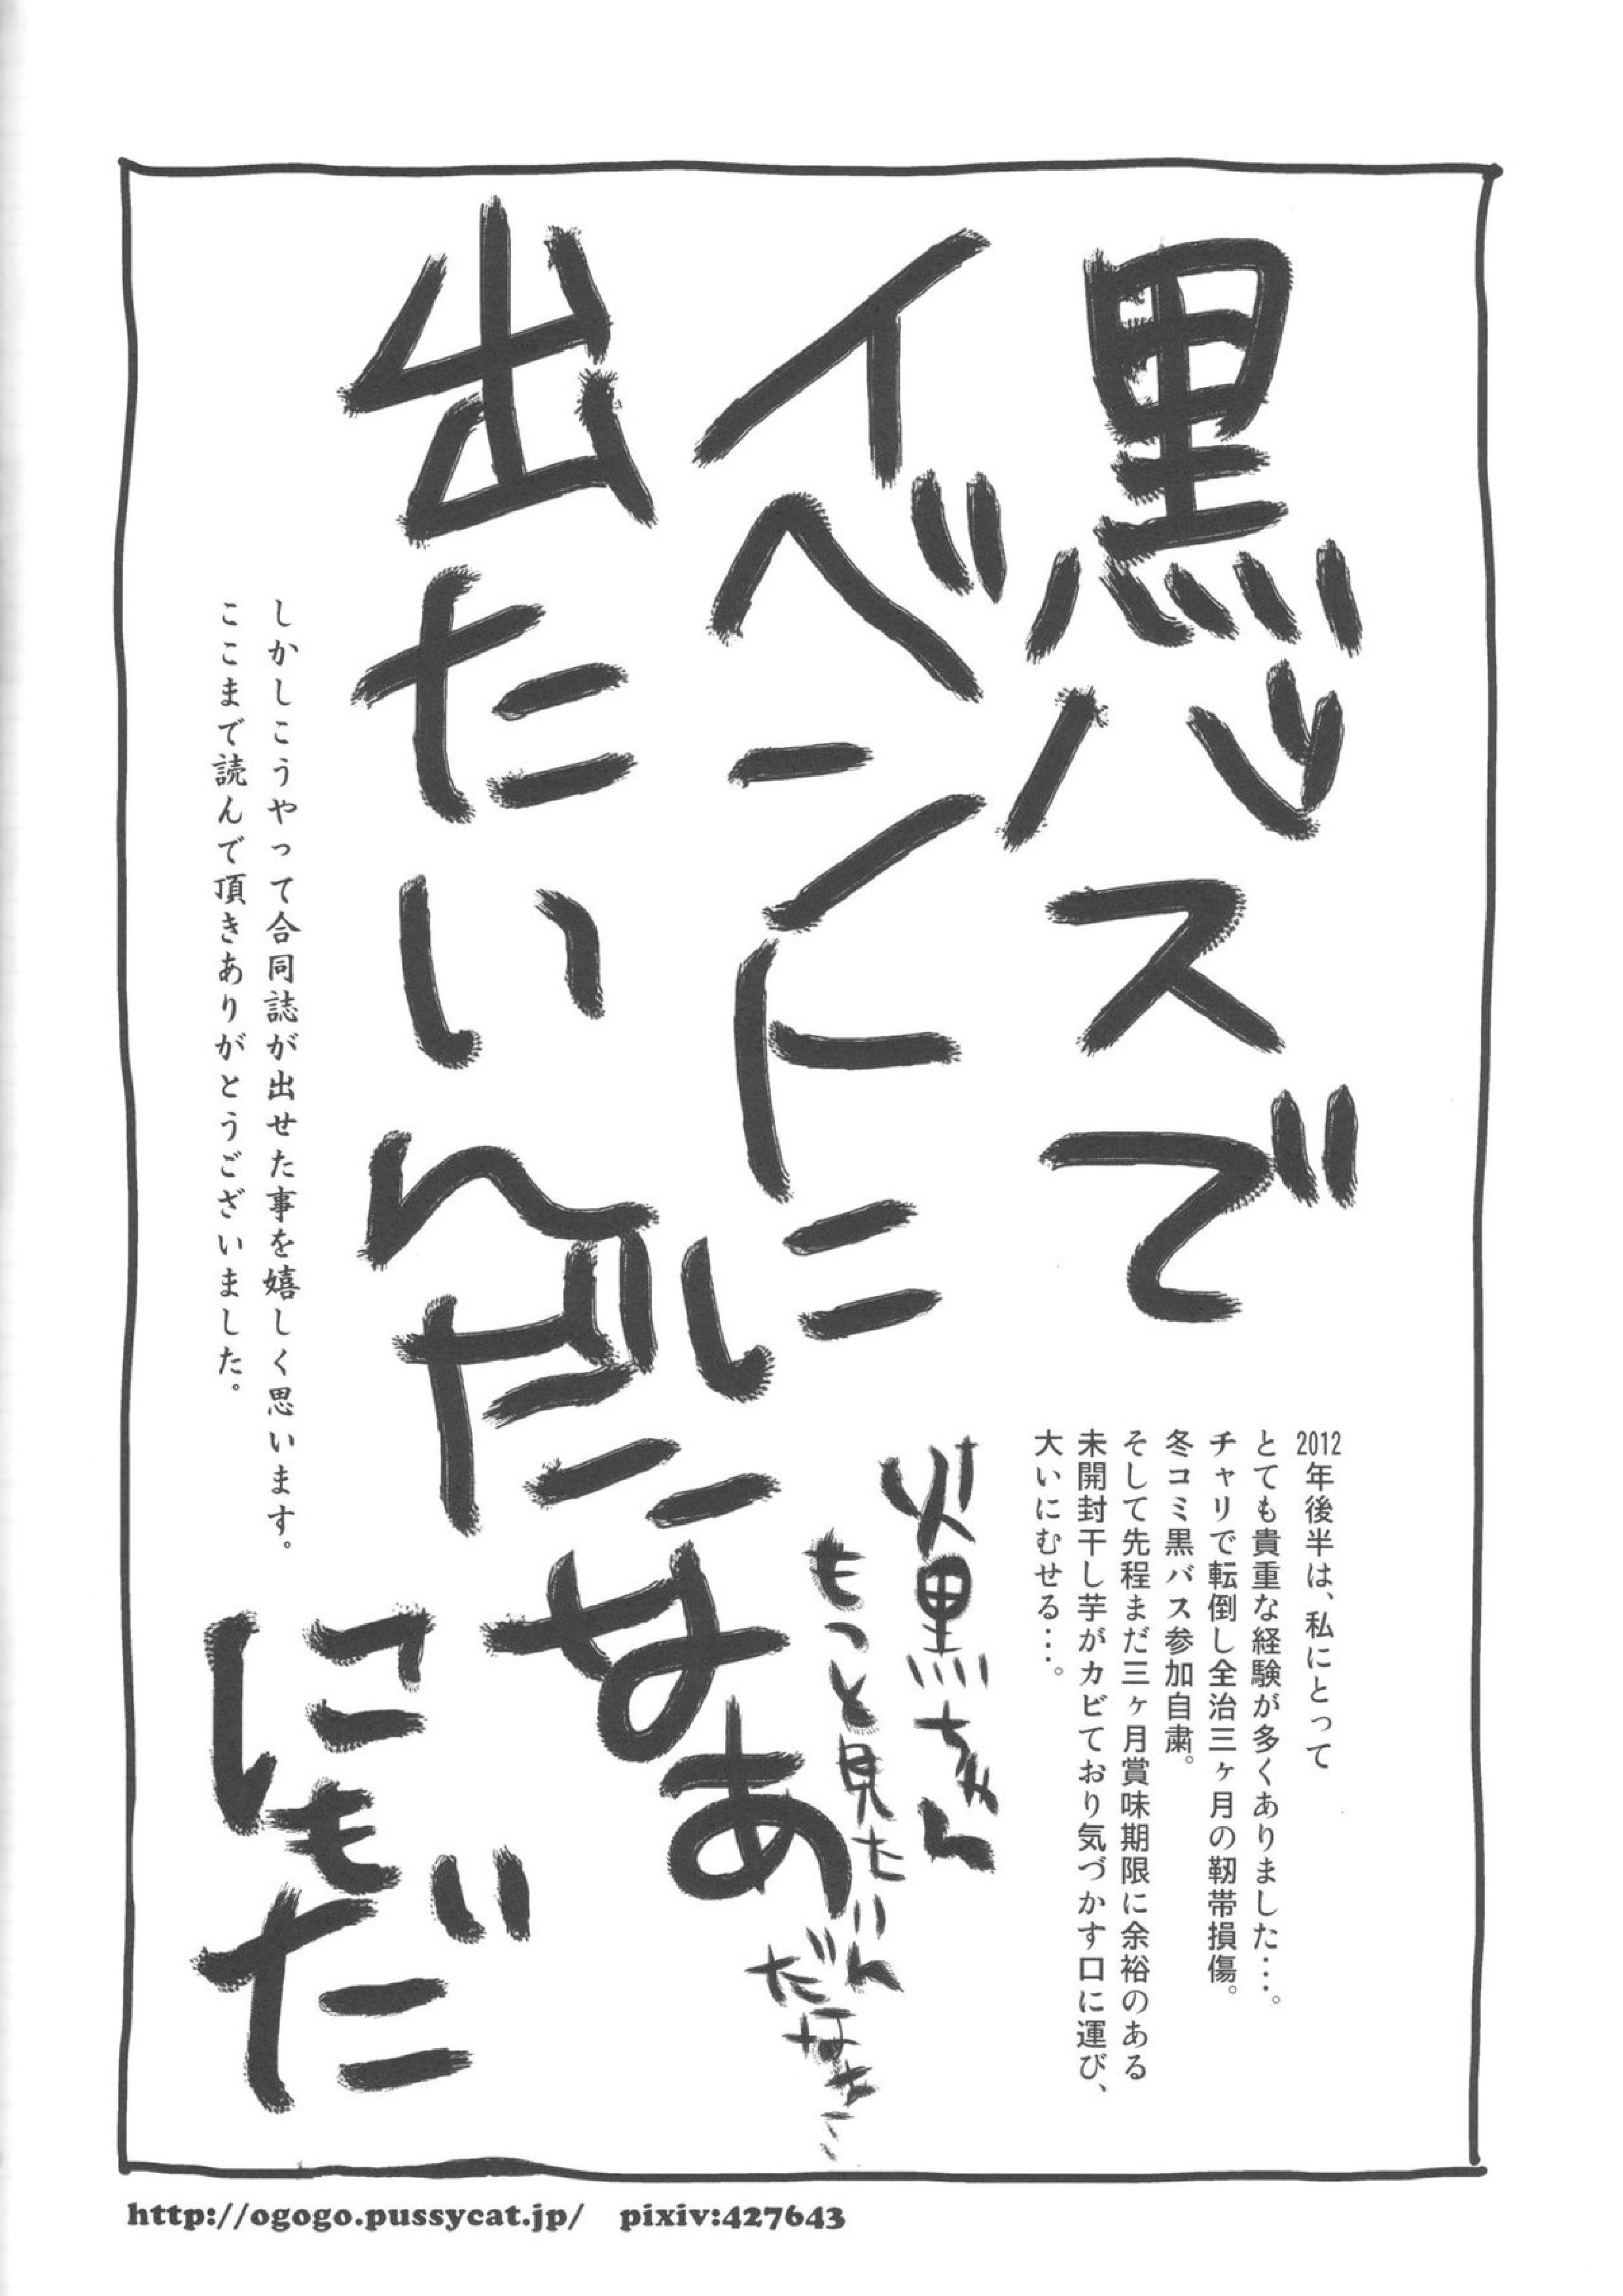 黒バスで
イベントに
出たいんだいなあ
2012年後半は、私にとって
とても貴重な経験が多くありました…。
チャリで転倒し全治三ヶ月の靭帯損傷。
冬コミ黒バス参加自粛。
そして先程まだ三ヶ月賞味期限に余裕のある
未開封干し芋がカビており気づかす口に運び、
大いにむせる…。
火黒ちゃん
もっと見たいん
だなあ
しかしこうやって合同誌が出せた事を嬉しく思います。
ここまで読んで頂きありがとうございました。
にもだ
http://ogogo.pussycat.jp/ pixiv:427643